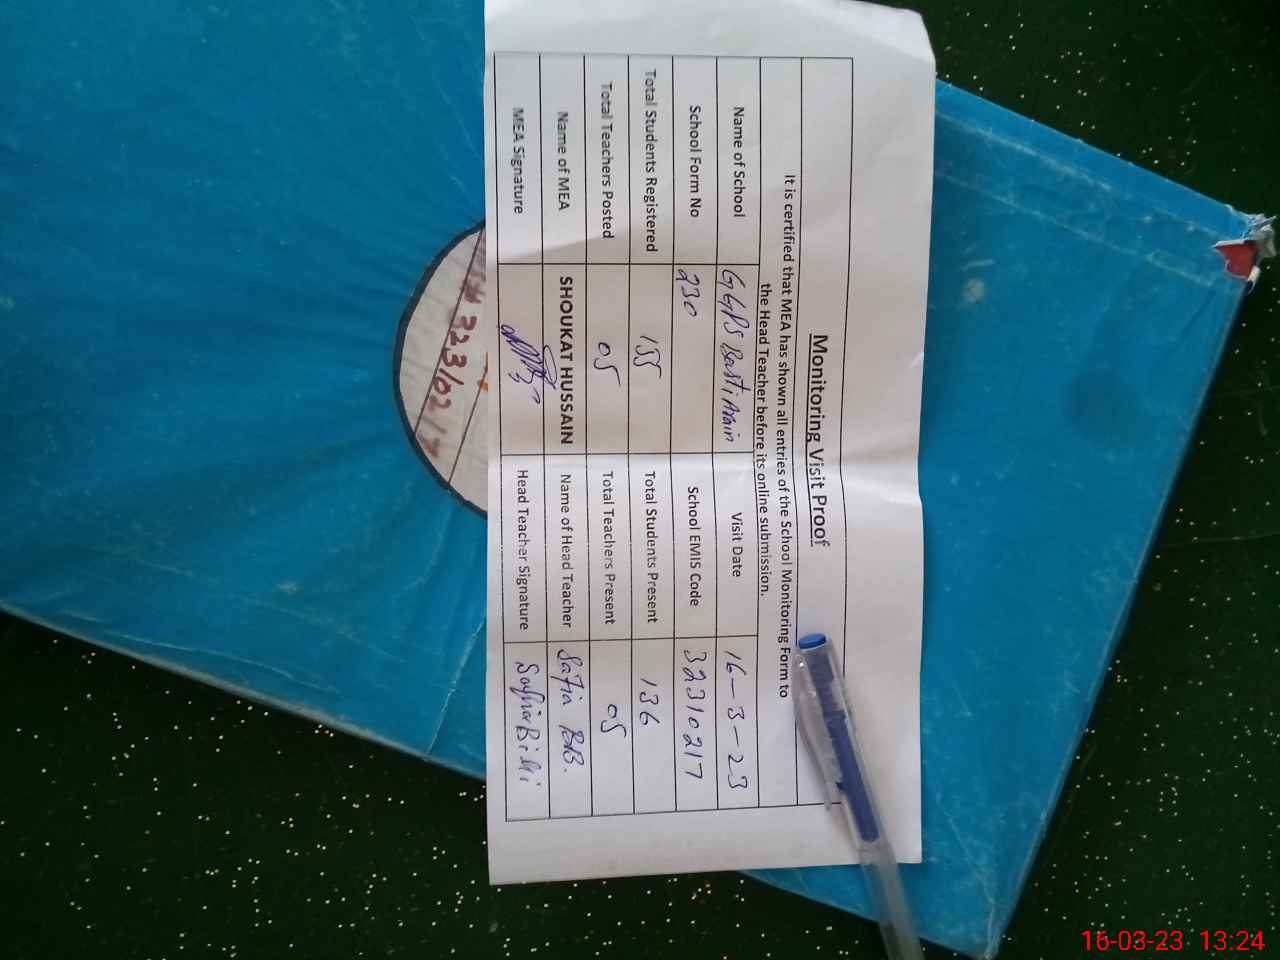 Monitoring Visit Proof
It is certified that MEA has shown all entries of the School Monitoring Form to
the Head Teacher before its online submission.
Name of School GGPS Basti Arain Visit Date 16-3-23
School Form No 230 School EMIS Code 32310217
Total Students Registered 155 Total Students Present 136
Total Teachers Posted 05 Total Teachers Present 05
Name of MEA SHOUKAT HUSSAIN Name of Head Teacher Safia BiBi.
MEA Signature Head Teacher Signature Safia Bibi
16-03-23 13:24